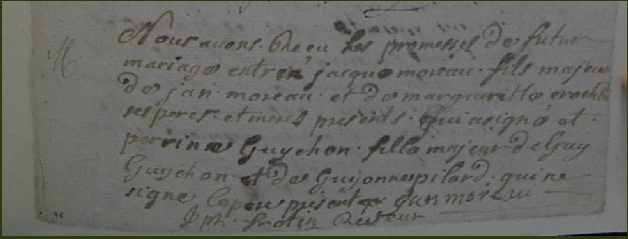 M
Nous avons Receu Les promesses de futur
mariage entre jacque moreau fils majeur
de jan moreau et de margueritte
ses peres et meres presents qui a signé et
perrinne Guychon fille majeur de Guy
Guychon et de Guyonne pilard qui ne
signe le pere present jan moreau
Recteur